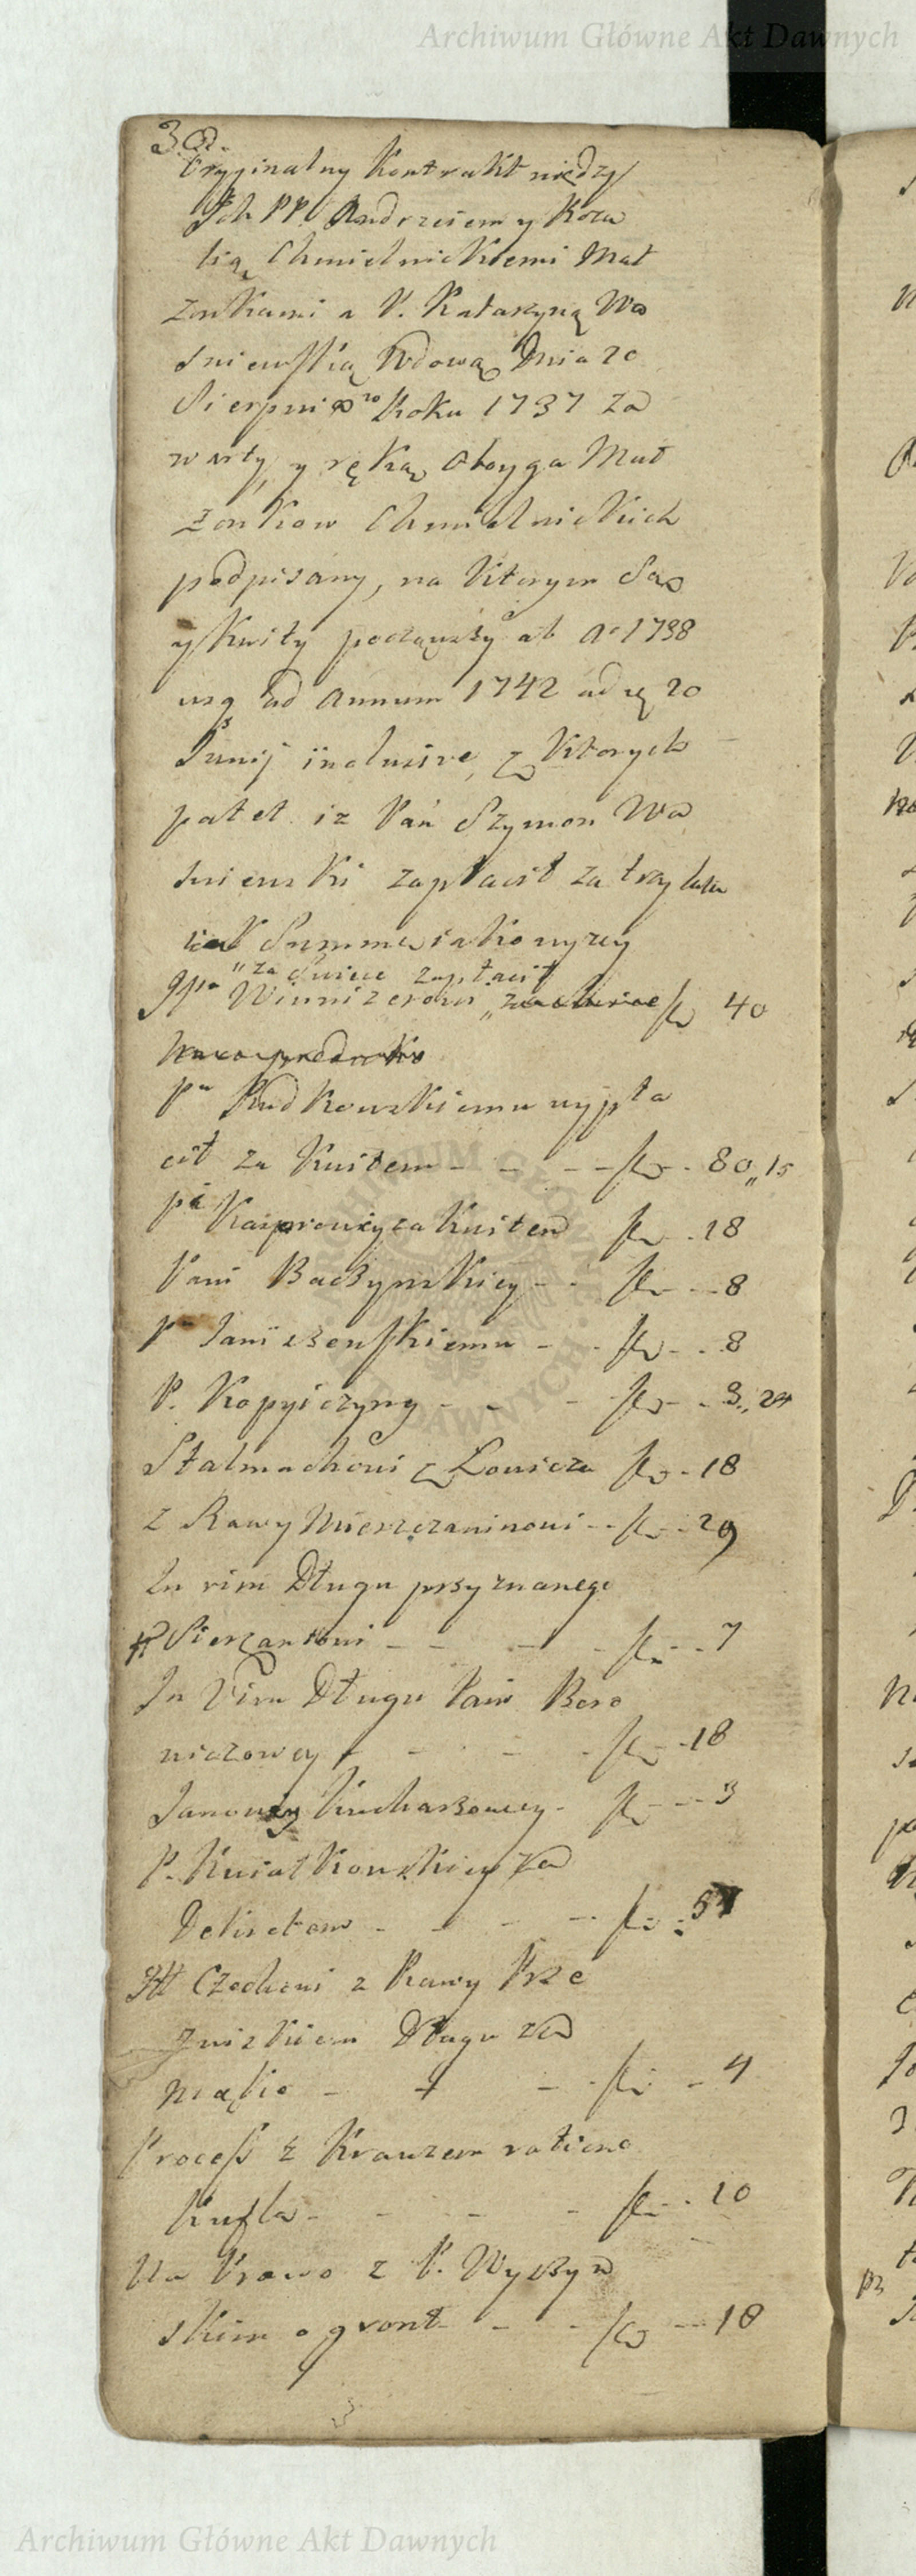 Archiwum Główne Akt Dawnych
30.
Oryginalny Kontrakt między
Ich PP. Andrzeiem y Roza
lią Chmielnickiemi Mał
zonkami a P. Katarzyną Wa
sniewską Wdową Dnia 20
Sierpnia Roku 1737 Za
warty, y ręką oboyga Mał
żonkow Chmielnickich
podpisany, na Ktorym Są
y Kwity począwszy ab Ao 1738
usq ad annum 1742 ad 20
Junij inclusive, z Ktorych
patet iz Pan Szymon Wa
sniewski zapłacił za trzy lata
Summę iako wyzey
za Swiece zapłacił
Winnizerowi fl 40
Pu Rudkowskiemu wypła
cił za Kwitem - - - fl - 80,,15
za Kwitem fl - 18
Pani Baczynskiey - - fl - - 8
Pu Janiszewskiemu - - fl - - 8
P. Kopyiczyny - - - fl - - 3,,24
Stalmachowi z Łowicza fl - 18
z Rawy Mieszczaninowi - - fl - - 29
In vim Długu przyznanego
Sierzantowi - - - - fl - - 7
In Vim Długu Pani Boro
niczowey - - - - fl - 18
Janowey Kucharzowey - fl - - 3
P. Kwiatkowskiey za
- - - - fl -
Czechowi z Rawy Prze
Długu za
Masło - - - fl - 4
Process z Krauzem ratione
Kufla - - - - fl - - 10
Na Prawo z P. Wyszyn
skim o gront - - - fl - - 18
Archiwum Główne Akt Dawnych